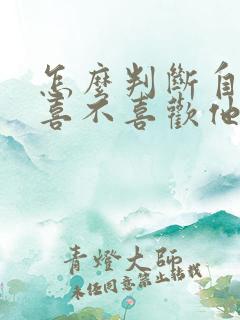 怎麼判斷自
喜不喜歡他
青燈大師
未经同意禁止转载